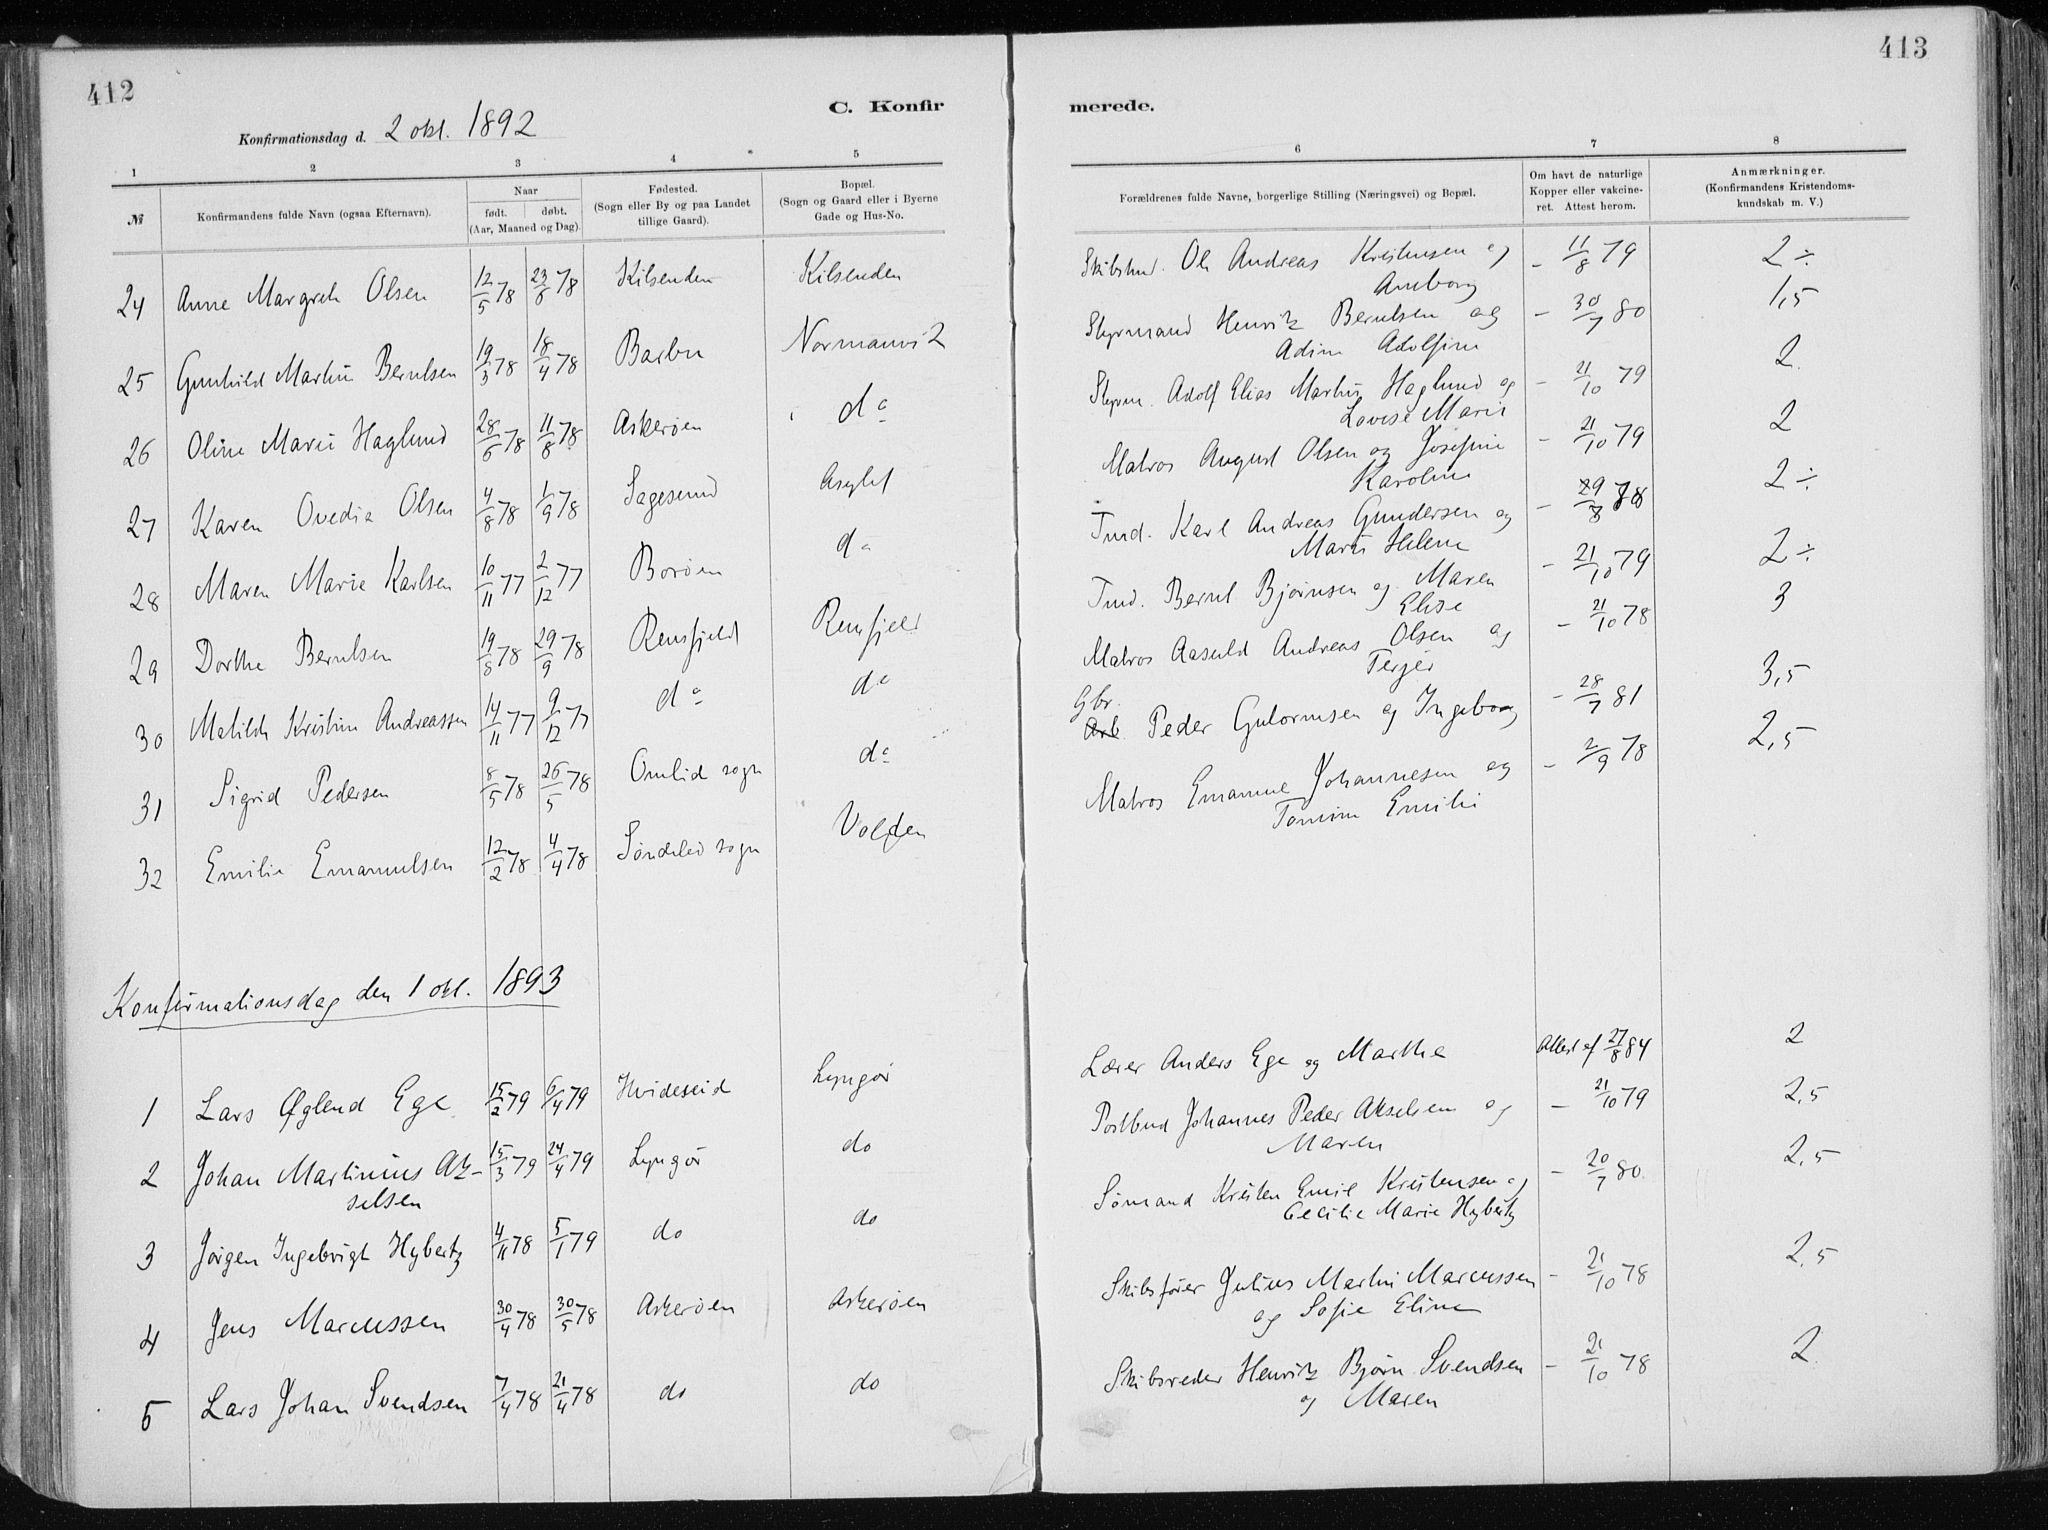 412
413
C. Konfir
merede.
Konfirmationsdag d. 2 okt. 1892
1 2 3 4 5 6 7 8
№
Konfirmandens fulde Navn (ogsaa Efternavn).
Naar
født. døbt.
(Aar, Maaned og Dag).
Fødested.
(Sogn eller By og paa Landet
tillige Gaard).
Bopæl.
(Sogn og Gaard eller i Byerne
Gade og Hus-No.
Forældrenes fulde Navne, borgerlige Stilling (Næringsvei) og Bopæl.
Om havt de naturlige
Kopper eller vakcine-
ret. Attest herom.
Anmærkninger.
(Konfirmandens Kristendoms-
kundskab m. V.)
24 Anne Margreth Olsen 12/5 78 23/6 78 Kilsenden Kilsenden Skibstmd. Ole Andreas Kristensen og - 11/8 79 2 ÷
Anborg
25 Gunhild Martine Berntsen 19/3 78 18/4 78 Barbu Normanvik Styrmand Henrik Berntsen og - 30/7 80 1,5
Adine Adolfine
26 Oline Marie Haglund 28/6 78 11/8 78 Askerøen do Styrm. Adolf Elias Martin Haglund og - 21/10 79 2
Lovise Marie
27 Karen Ovedia Olsen 4/8 78 1/9 78 Sagesund Asylet Matros August Olsen og Josefine - 21/10 79 2
Karoline
28 Maren Marie Karlsen 10/11 77 2/12 77 Borøen do Tmd. Karl Andreas Gundersen og - 29/8 78 2 ÷
Marie Helene
29 Dorthe Berntsen 19/8 78 29/9 78 Rensfjeld Rensfjeld Tmd. Bernt Bjørnsen og Maren - 21/10 79 2 ÷
Elise
30 Matilde Kristine Andreassen 14/11 77 9/12 77 do do Matros Aasuld Andreas Olsen og - 21/10 78 3
Terjer
31 Sigrid Pedersen 8/5 78 26/5 78 Omlid sogn do Gbr. Arb. Peder Gutormsen og Ingeborg - 28/7 81 3,5
32 Emilie Emanuelsen 12/2 78 4/4 78 Søndeled sogn Volden Matros Emanuel Johannesen og - 2/9 78 2,5
Tomine Emilie
Konfirmationsdag den 1 okt. 1893
1 Lars Øglend Ege 15/2 79 6/4 79 Hvideseid Lyngør Lærer Anders Ege og Marthe Attest af 27/8 84 2
2 Johan Martinius Ak-
selsen 15/3 79 24/4 79 Lyngør do Postbud Johannes Peder Akselsen og - 21/10 79 2,5
Maren
3 Jørgen Ingebrigt Hybertz 4/11 78 5/1 79 do do Sømand Kristen Emil Kristensen og - 20/7 80 2,5
Cecilie Marie Hybertz
4 Jens Marcussen 30/4 78 30/5 78 Askerøen Askerøen Skibsfører Julius Martin Marcussen - 21/10 78 2,5
og Sofie Eline
5 Lars Johan Svendsen 7/4 78 21/4 78 do do Skibsreder Henrik Bjørn Svendsen - 21/10 78 2
og Maren